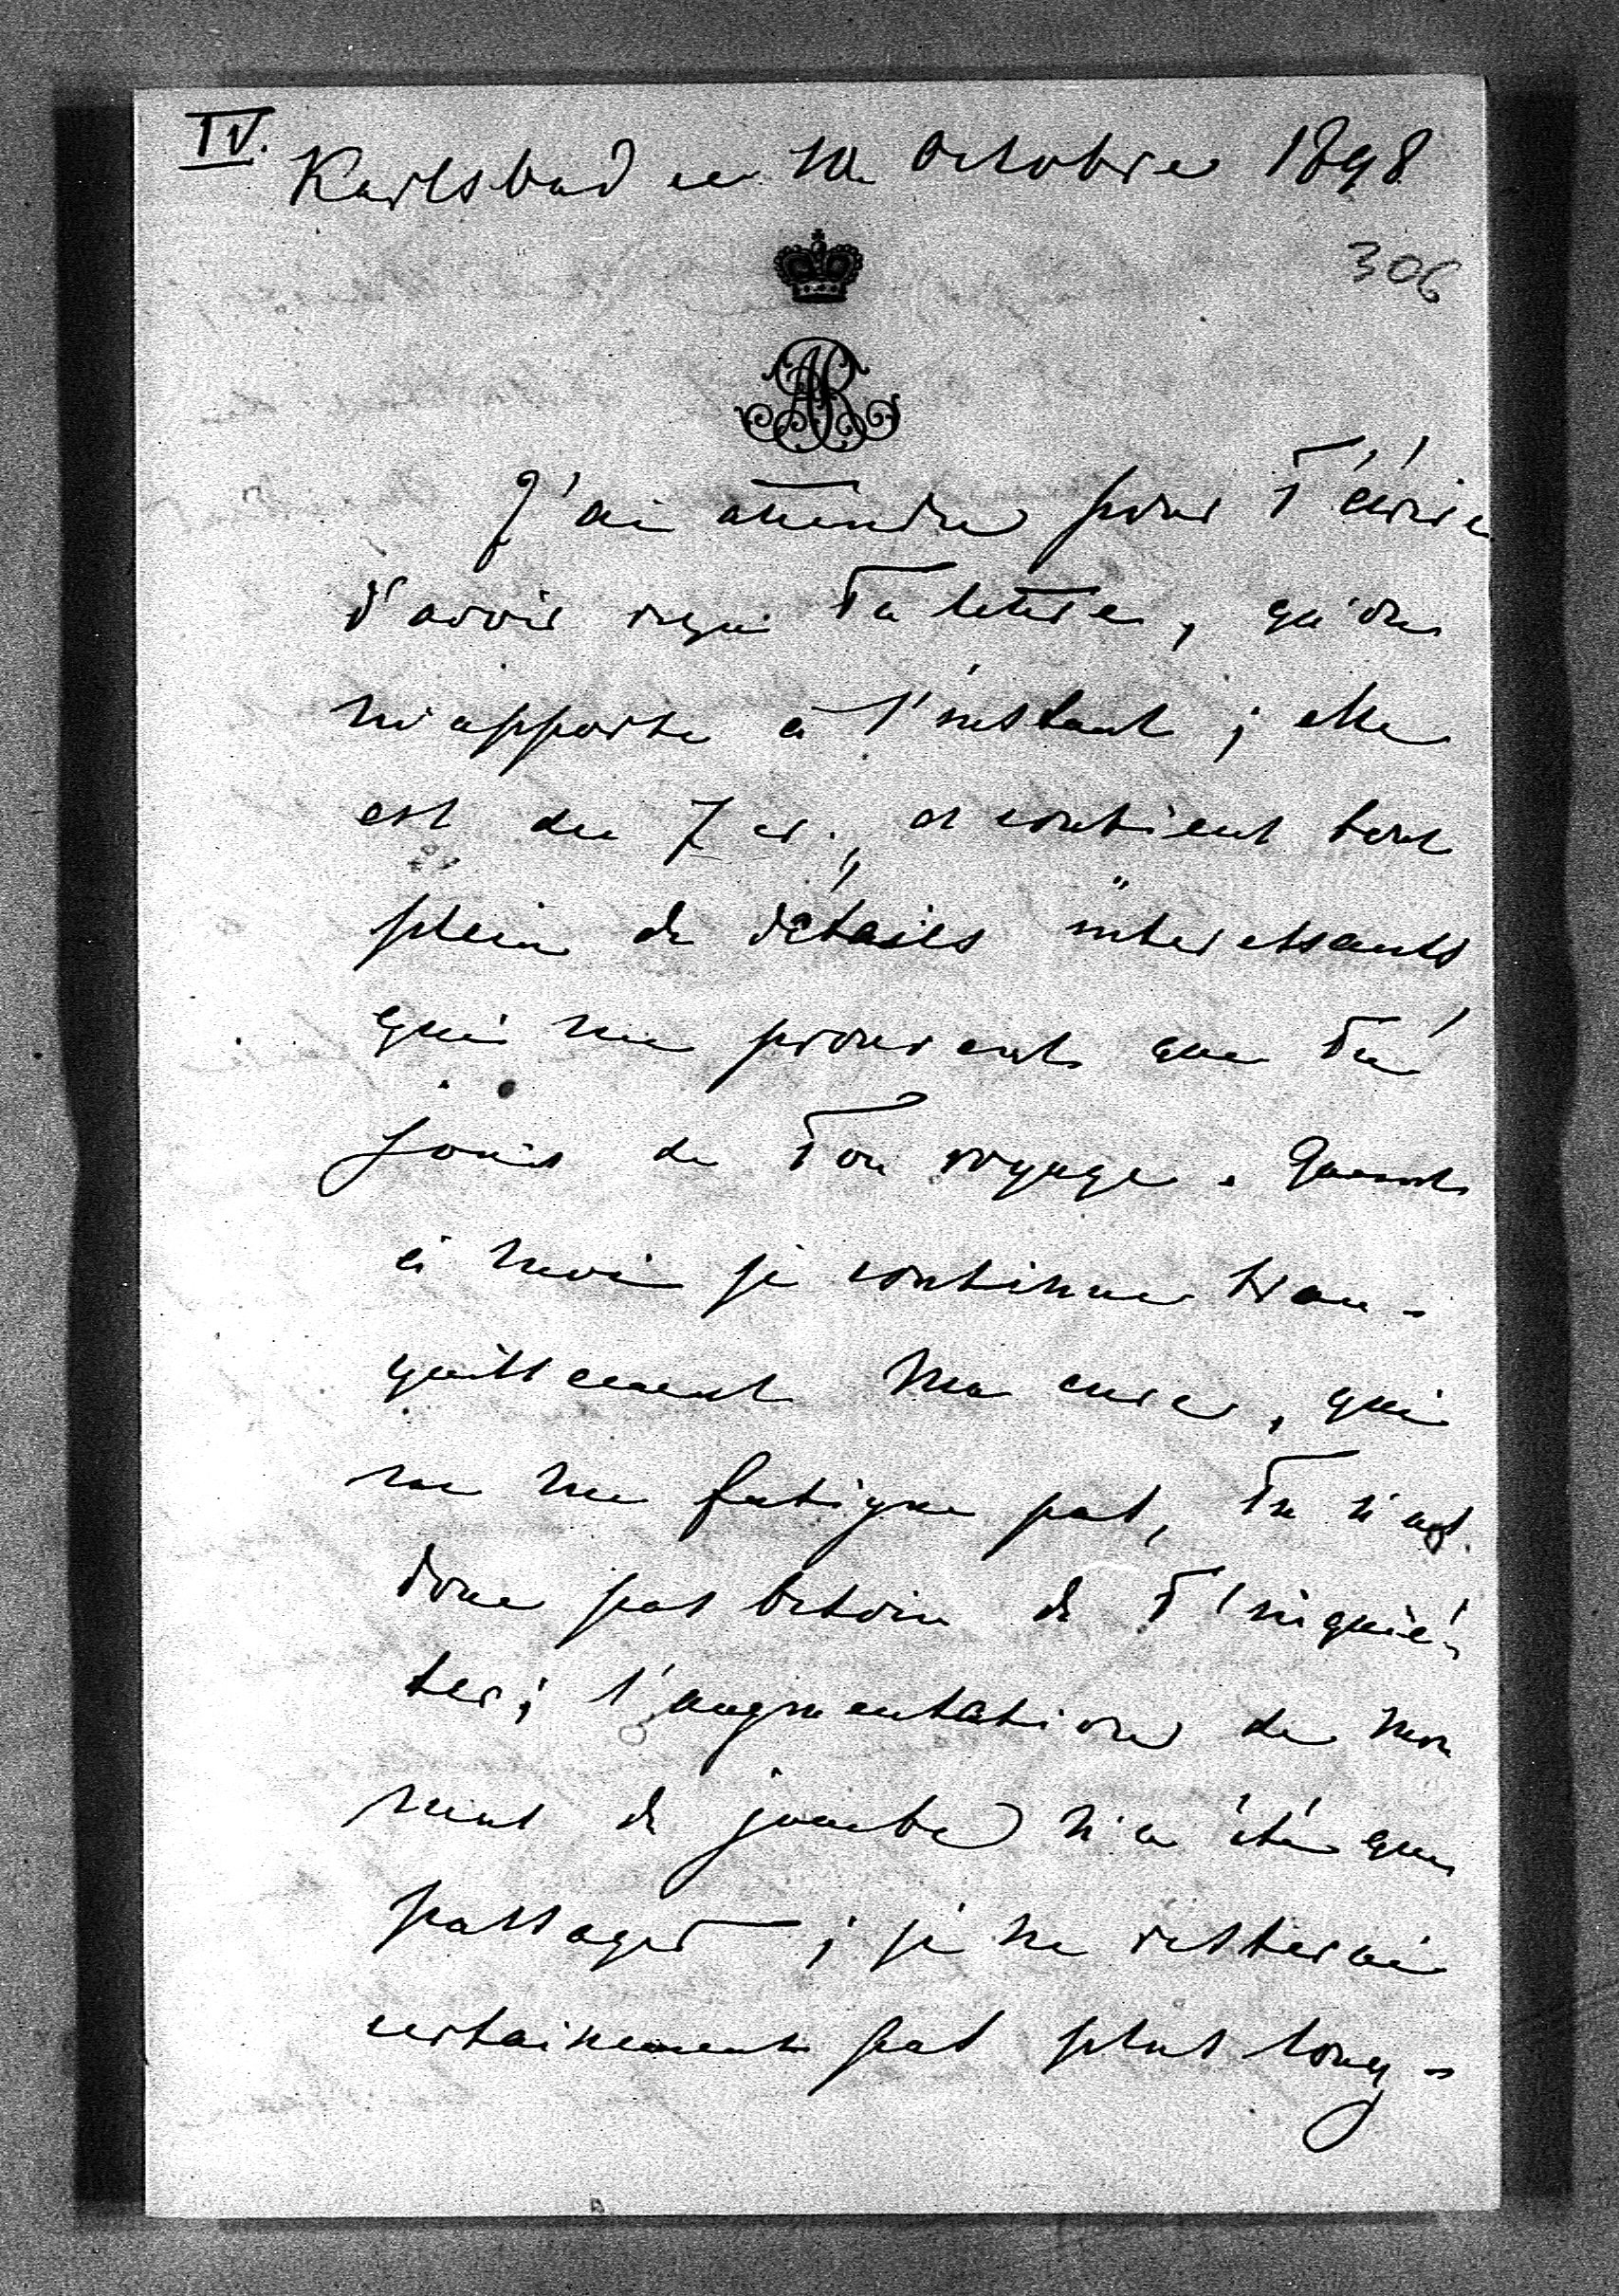 IV.
Karlsbad ce 10 Octobre 1898
306
AR
J'ai attendu pour T'écrire
d'avoir reçu Ta lettre, qu'on
m'apporte à l'instant; elle
est du 7 cr., et contient tout
plein de détails intéressants
qui me prouvent que Tu
jouis de Ton voyage. Quant
à moi je continue tran-
quillement ma cure, qui
ne me fatigue pas, Tu n'as
donc pas besoin de T'inquié-
ter; l'augmentation de mon
mal de jambe n'a été que
passager; je ne resterai
certainement pas plus long-